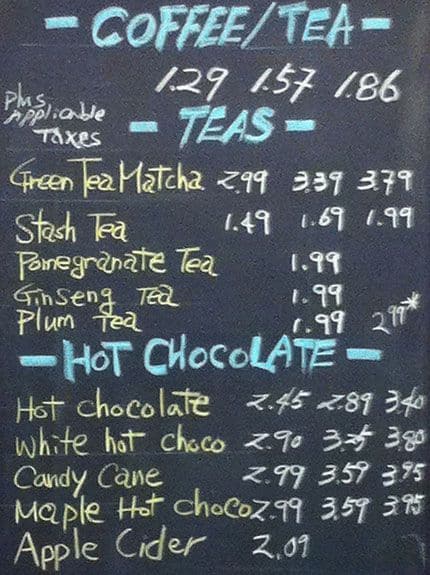 - COFFEE/TEA -
1.29 1.57 1.86
Plus
Applicable
Taxes
- TEAS -
Green Tea Matcha 2.99 3.39 3.79
Stash Tea 1.49 1.69 1.99
Pomegranate Tea 1.99
Ginseng Tea 1.99
Plum Tea 1.99 2.99*
- HOT CHOCOLATE -
Hot chocolate 2.45 2.89 3.40
White hot choco 2.90 3.25 3.80
Candy Cane 2.99 3.59 3.95
Maple Hot choco 2.99 3.59 3.95
Apple Cider 2.09